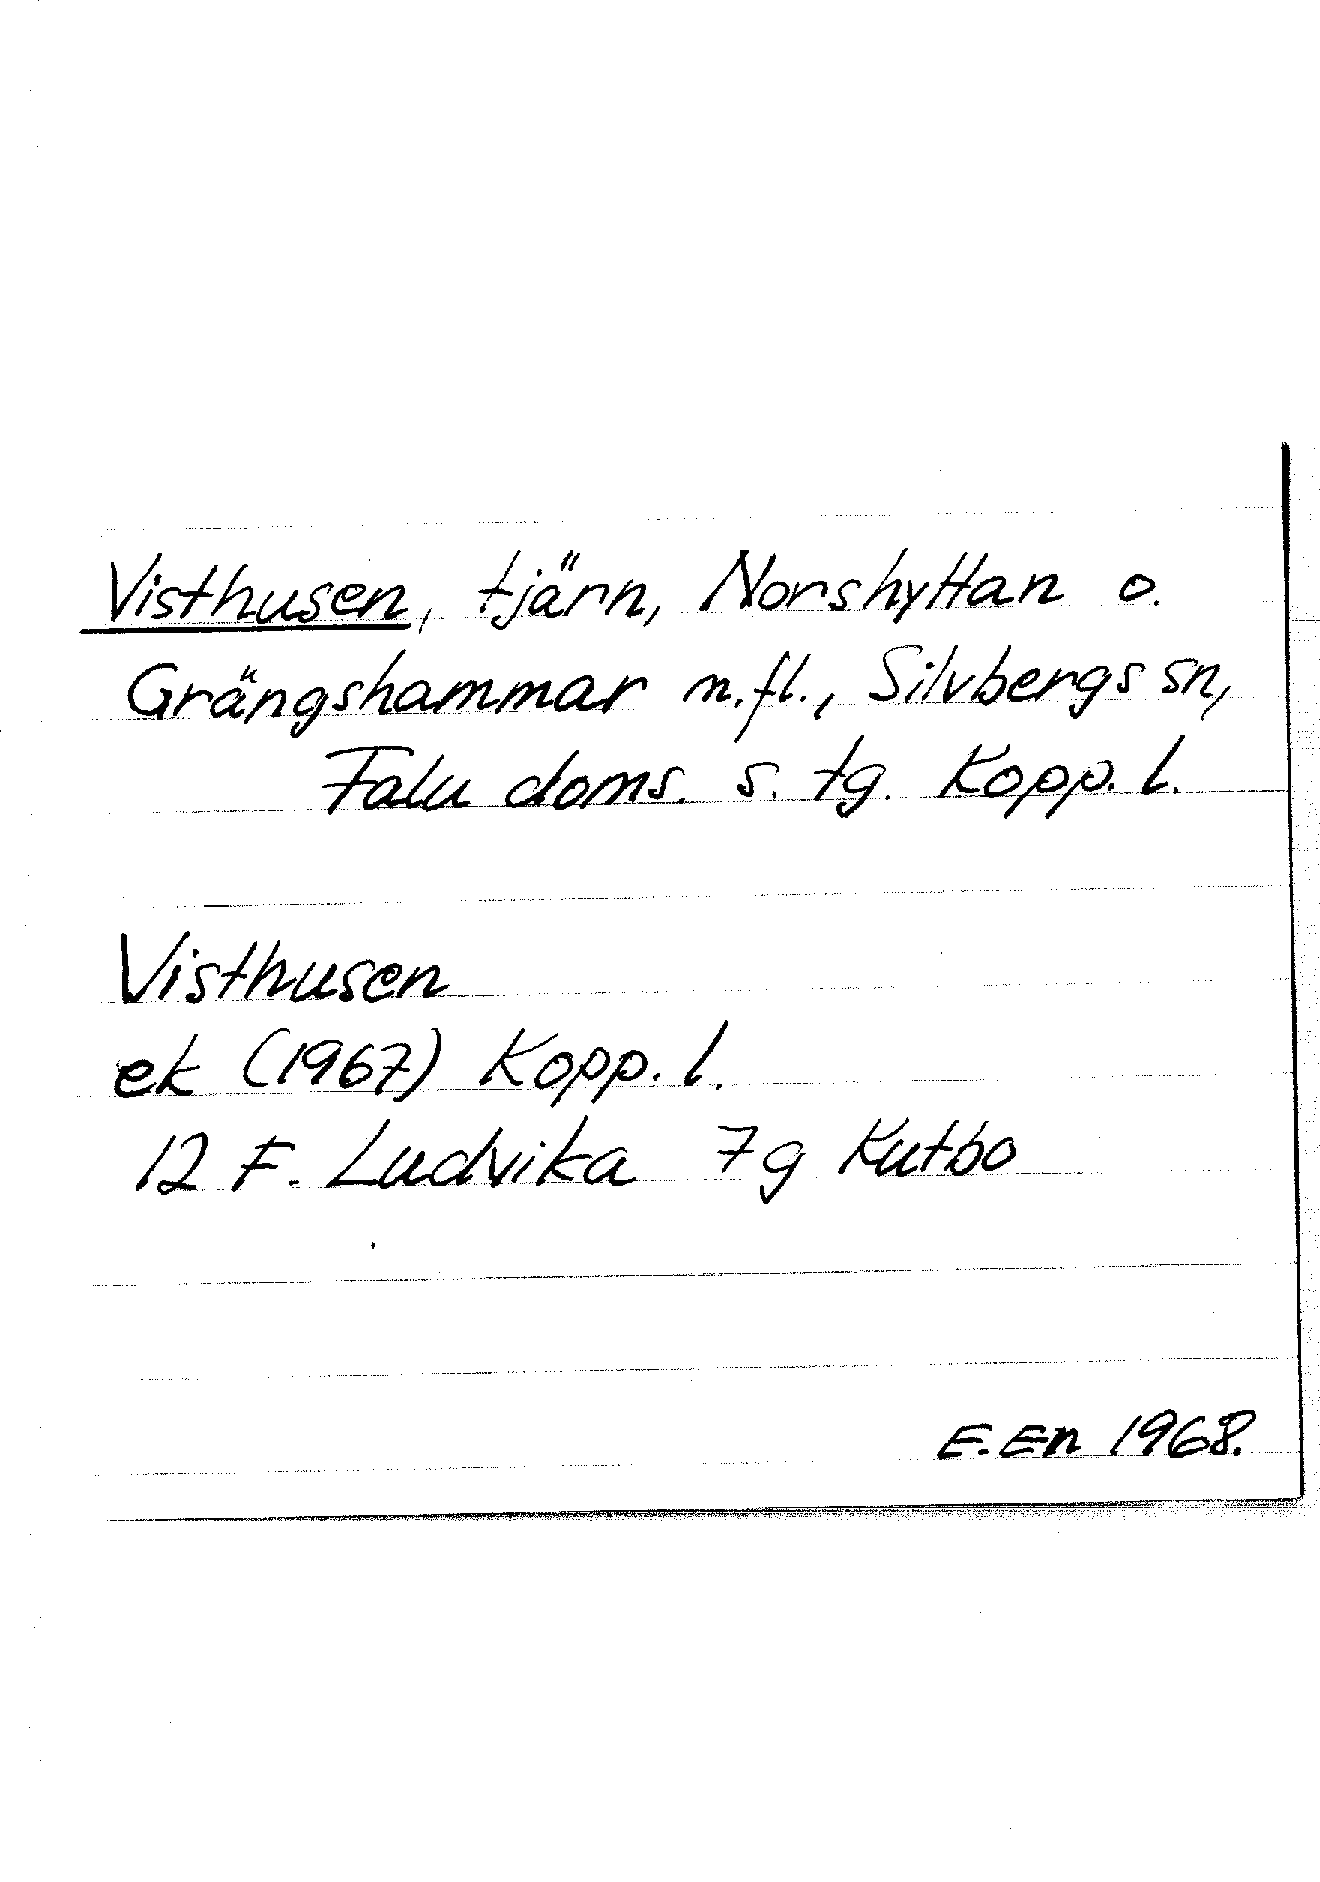 Visthusen, tjärn, Norshyttan o.
Grängshammar m.fl., Silvbergs sn,
Falu doms. s. tg. Kopp. l.
Visthusen
ek (1967) Kopp. l.
12 F. Ludvika 7g Kutbo
E. En 1968.